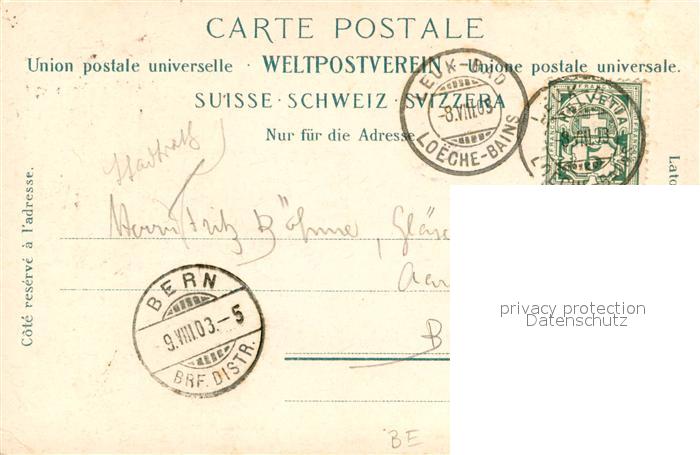 CARTE POSTALE
Union postale universelle · WELTPOSTVEREIN · Unione postale universale.
SUISSE · SCHWEIZ · SVIZZERA
Nur für die Adresse
LEUK-BAD
-8.VIII.03
LOËCHE-BAINS
HELVETIA
5
Stadtrath
Herrn Fritz Böhme,
B
BERN
9.VIII.03.-5
BRF. DISTR.
Côté reservé à l'adresse.
Lato
privacy protection
Datenschutz
BE